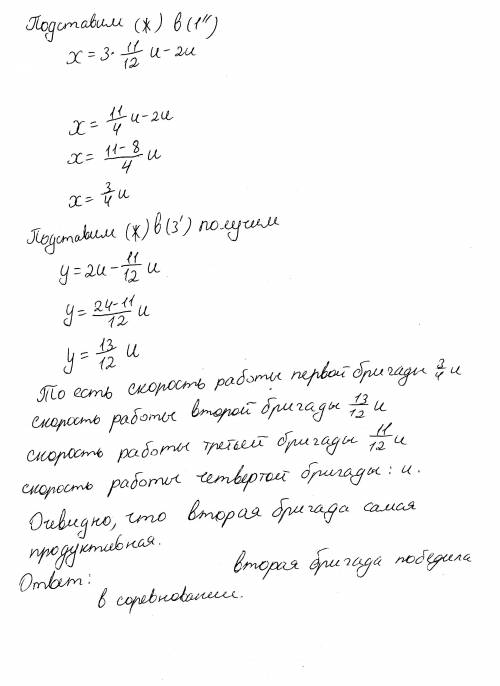 Подставим (*) в (1'')
x = 3 · 11/12 u - 2u
x = 11/4 u - 2u
x = (11 - 8)/4 u
x = 3/4 u
Подставим (*) в (3') получим
y = 2u - 11/12 u
y = (24 - 11)/12 u
y = 13/12 u
То есть скорость работы первой бригады 3/4 u
скорость работы второй бригады 13/12 u
скорость работы третьей бригады 11/12 u
скорость работы четвертой бригады: u.
Очевидно, что вторая бригада самая
продуктивная.
Ответ: вторая бригада победила
в соревновании.